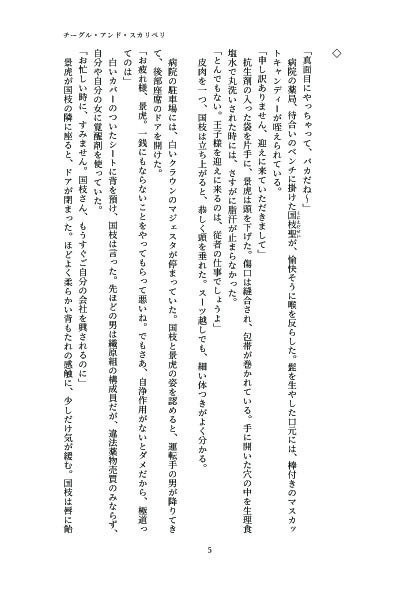 チーグル・アンド・スカリペリ
◇
「真面目にやっちゃって、バカだね～」
病院の薬局、待合いのベンチに掛けた国枝聖が、愉快そうに喉を反らした。髭を生やした口元には、棒付きのマスカッ
トキャンディーが咥えられている。
「申し訳ありません、迎えに来ていただきまして」
抗生剤の入った袋を片手に、景虎は頭を下げた。傷口は縫合され、包帯が巻かれている。手に開いた穴の中を生理食
塩水で丸洗いされた時には、さすがに脂汗が止まらなかった。
「とんでもない。王子様を迎えに来るのは、従者の仕事でしょうよ」
皮肉を一つ、国枝は立ち上がると、恭しく頭を垂れた。スーツ越しでも、細い体つきがよく分かる。
病院の駐車場には、白いクラウンのマジェスタが停まっていた。国枝と景虎の姿を認めると、運転手の男が降りてき
て、後部座席のドアを開けた。
「お疲れ様、景虎。一銭にもならないことをやってもらって悪いね。でもさあ、自浄作用がないとダメだから、極道っ
てのは」
白いカバーのついたシートに背を預け、国枝は言った。先ほどの男は織原組の構成員だが、違法薬物売買のみならず、
自分や自分の女に覚醒剤を使っていた。
「お忙しい時に、すみません。国枝さん、もうすぐご自分の会社を興されるのに」
景虎が国枝の隣に座ると、ドアが閉まった。ほどよく柔らかい背もたれの感触に、少しだけ気が緩む。国枝は唇に飴
5